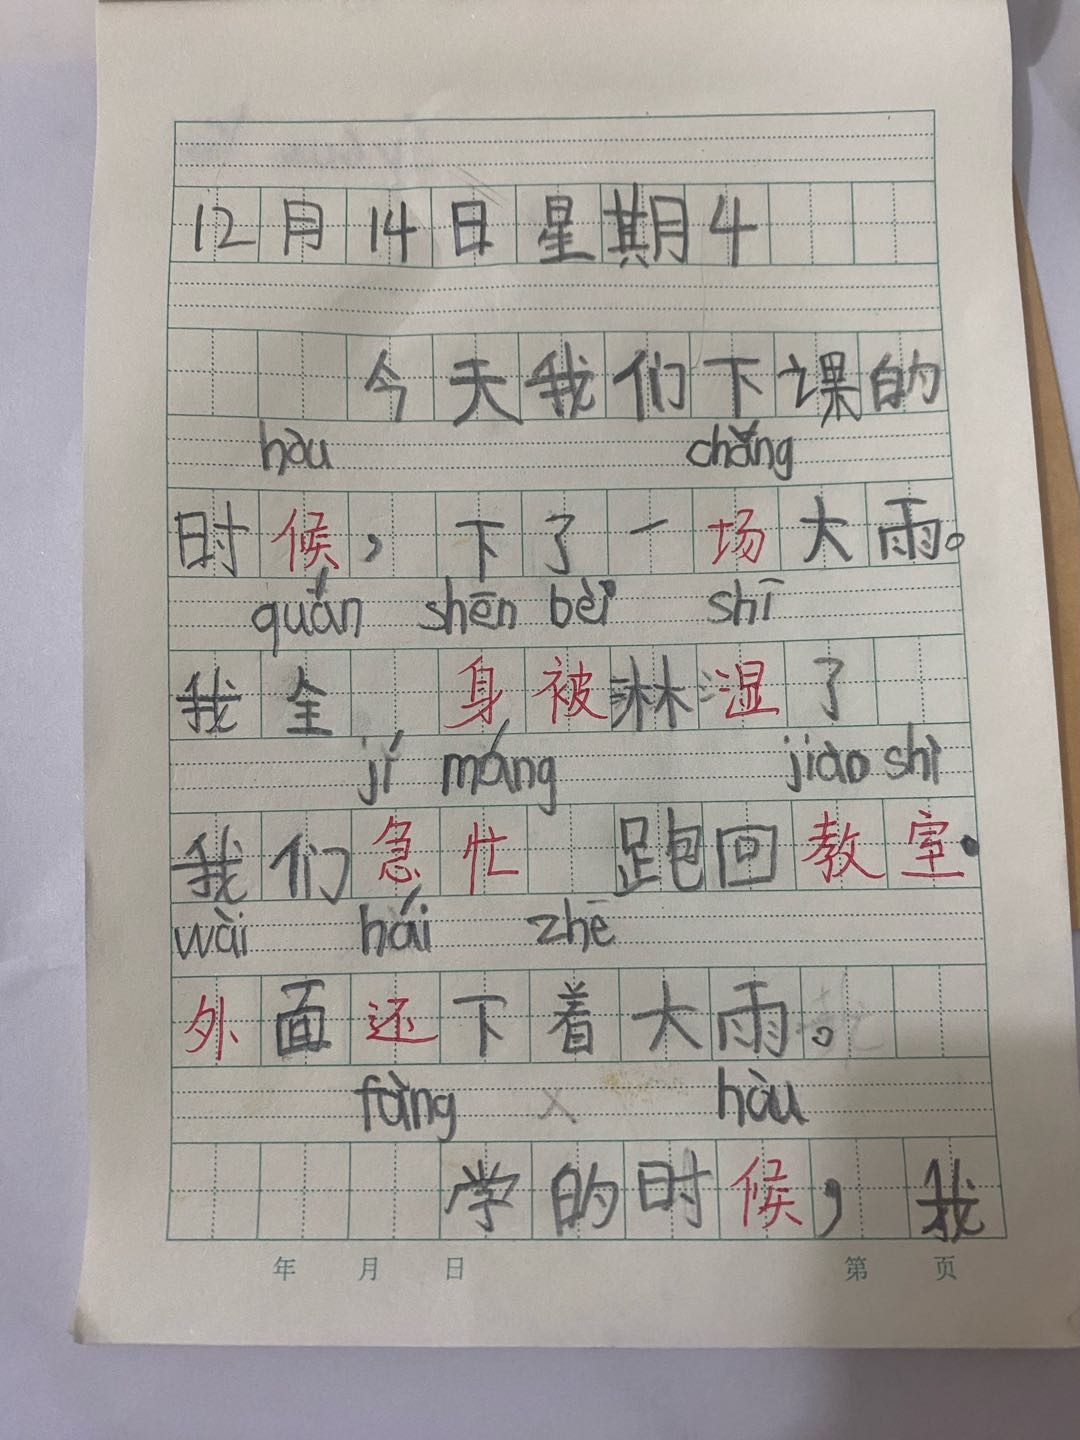 12月14日星期4
今天我们下课的
hòu chǎng
时候，下了一场大雨。
quán shēn bèi shī
我全身被淋湿了
jí máng jiào shì
我们急忙跑回教室.
wài hái zhē
外面还下着大雨。
fàng × hòu
学的时候，我
年 月 日 第 页